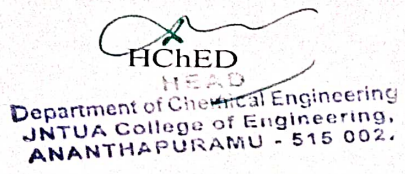 HChED
HEAD
Department of Chemical Engineering
JNTUA College of Engineering,
ANANTHAPURAMU - 515 002.